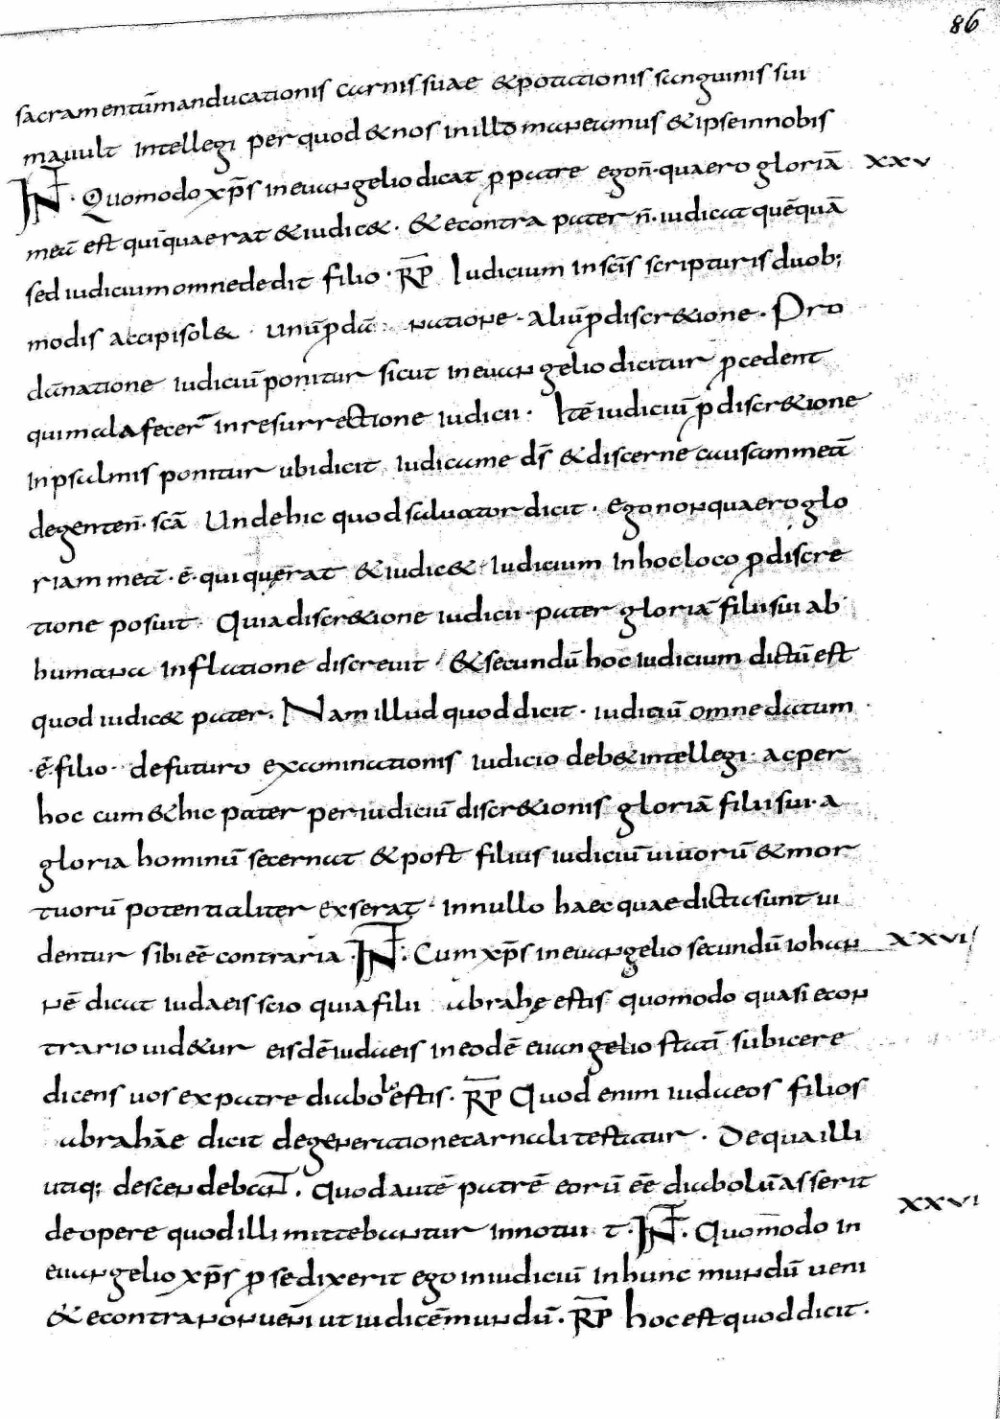 86
sacramentū manducationis carnis suae & potationis sanguinis sui
mavult intellegi per quod & nos in illo maneamus & ipse in nobis
INT · Quomodo xp̄s in euangelio dicat p patre ego n̄ · quaero gloriā XXV
meā est qui quaerat & iudic& · & econtra pater n̄ · iudicat quēquā
sed iudicium omne dedit filio · R̄P̄ Iudicium in sc̄is scripturis duob;
modis accipi sol& · unū p dā natione · Aliū p discr&ione · Pro
dānatione iudiciū ponitur sicut in euangelio dicitur pcedent
qui mala fecer̄ in resurrectione iudicii · Itē iudiciū p discr&ione
In psalmis ponitur ubi dicit iudica me d̄s & discerne causam meā
de gente n̄ · scā Unde hic quod saluator dicit · ego non quaero glo
riam meā · ē · qui querat & iudic& · Iudicium in hoc loco p discre
tione posuit · Quia discr&ione iudicii · pater gloriā filii sui ab
humana inflatione discreuit · & secundū hoc iudicium dictū est
quod iudic& pater · Nam illud quod dicit · iudiciū omne datum
· ē · filio · de futuro examinationis iudicio deb& intellegi · ac per
hoc cum & hic pater per iudiciū discr&ionis gloriā filii sui · a
gloria hominū secernat & post filius iudiciū uiuorū & mor
tuorū potentialiter exserat · in nullo haec quae dicta sunt ui
dentur sibi eē contraria · INT · Cum xp̄s in euangelio secundū iohan XXVI
nē dicat iudaeis scio quia filii abrahę estis quomodo quasi econ
trario uid&ur eisdē iudaeis in eodē euangelio statī subicere
dicens uos ex patre diabolo estis · R̄P̄ Quod enim iudaeos filios
abrahāe dicit degeneratione carnali testatur · De qua illi
utiq; descendebant · Quod autē patrē eorū eē diabolū asserit
de opere quod illi mittebantur innotuit · INT · Quomodo in XXVI
euangelio xp̄s p se dixerit ego in iudiciū in hunc mundū ueni
& econtra non ueni ut iudicē mundū · R̄P̄ hoc est quod dicit ·